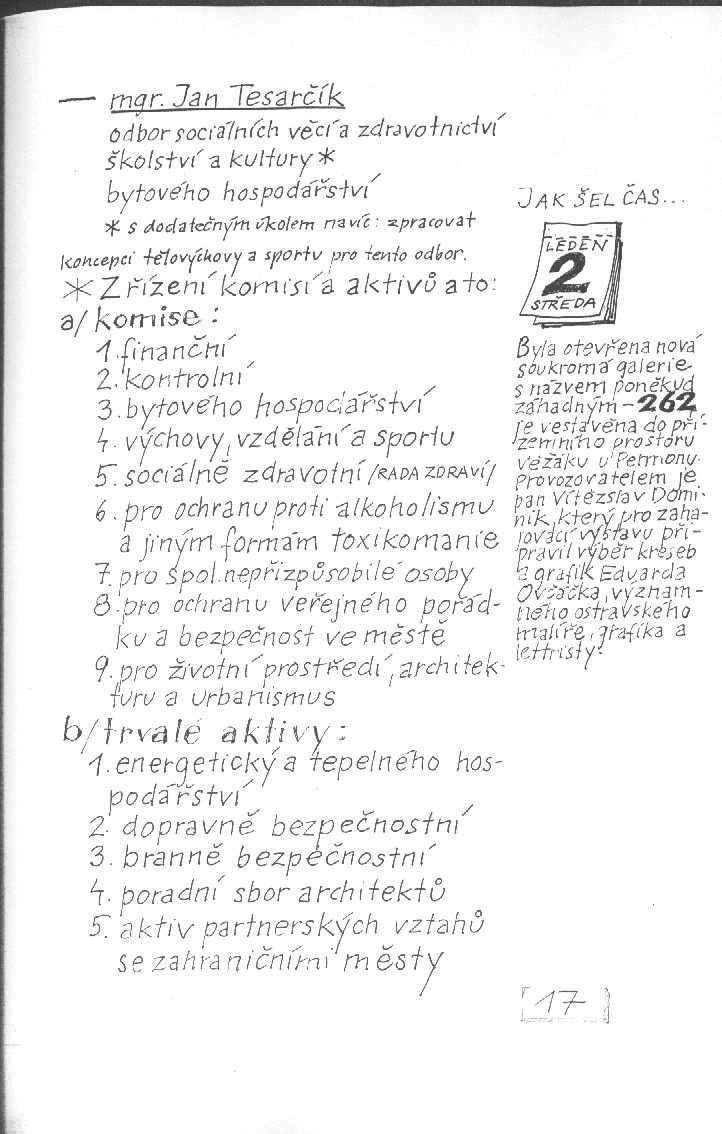 — mgr. Jan Tesarčík
odbor sociálních věcí a zdravotnictví
školství a kultury *
bytového hospodářství
* s dodatečným úkolem navíc: zpracovat
koncepci tělovýchovy a sportu pro tento odbor.
* Zřízení komisí a aktivů a to:
a/ komise:
1. finanční
2. kontrolní
3. bytového hospodářství
4. výchovy, vzdělání a sportu
5. sociálně zdravotní /RADA ZDRAVÍ/
6. pro ochranu proti alkoholismu
a jiným formám toxikomanie
7. pro spol. nepřizpůsobilé osoby
8. pro ochranu veřejného pořád-
ku a bezpečnost ve městě
9. pro životní prostředí, architek-
turu a urbanismus
b/ trvalé aktivy:
1. energetický a tepelného hos-
podářství
2. dopravně bezpečnostní
3. branně bezpečnostní
4. poradní sbor architektů
5. aktiv partnerských vztahů
se zahraničními městy
JAK ŠEL ČAS...
LEDEN
2
STŘEDA
Byla otevřena nová
soukromá galerie
s názvem poněkud
záhadným – 262,
je vestavěna do pří-
zemního prostoru
věžáku u Permonu.
Provozovatelem je
pan Vítězslav Domi-
ník, který pro zaha-
jovací výstavu při-
pravil výběr kreseb
a grafik Eduarda
Ovčáčka, význam-
ného ostravského
malíře, grafika a
lettristy.
[17]